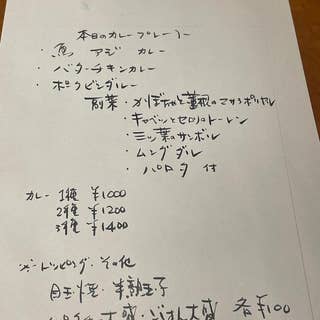 本日のカレープレート
・魚 アジ カレー
・バターチキンカレー
・ポークビンダルー
副菜・かぼちゃと蓮根のマサラポリヤル
・キャベツとセロリのトーレン
・三ッ葉のサンボル
・ムングダル
・パロタ 付
カレー 1種 ¥1000
2種 ¥1200
3種 ¥1400
トッピング・その他
目玉焼・半熟玉子
大盛・ごはん大盛 各¥100